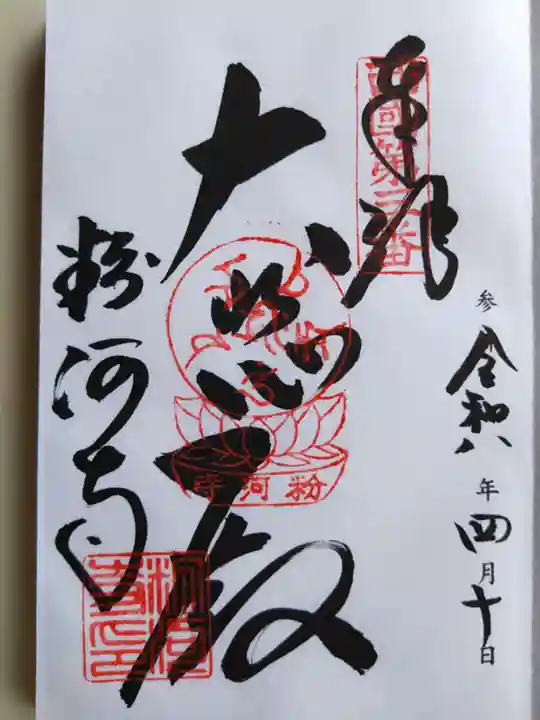 奉拝
西国第三番
参 令和八年四月十日
大悲殿
粉河寺
粉河寺